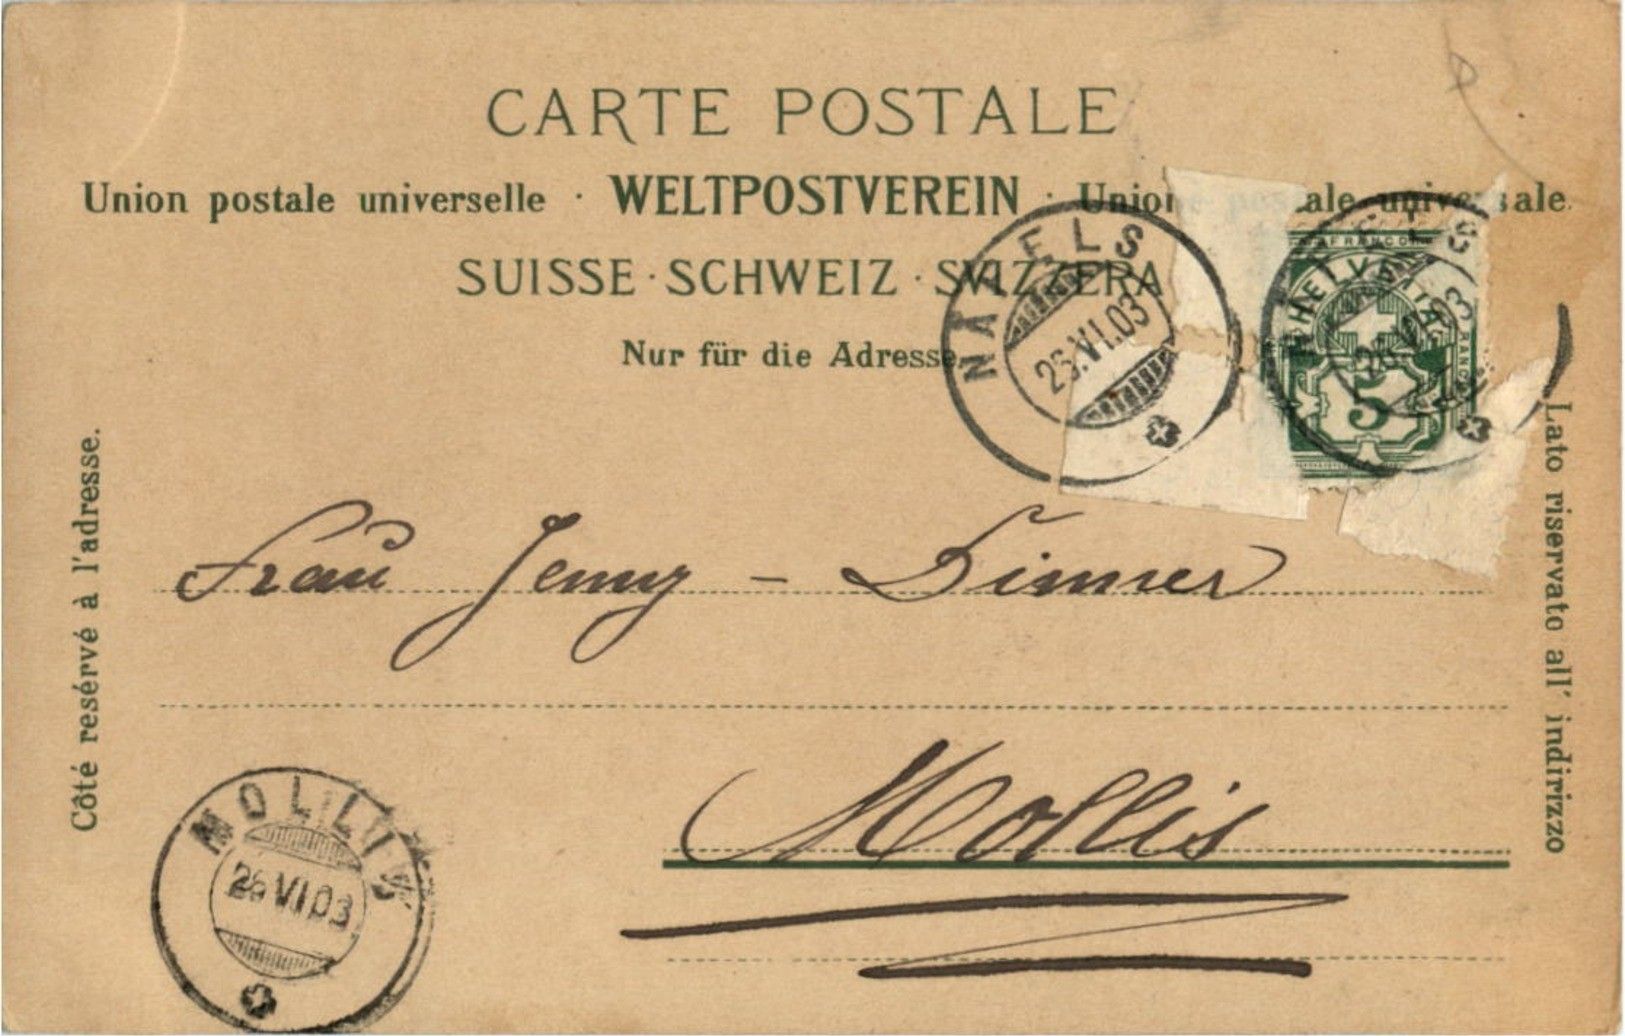 CARTE POSTALE
Union postale universelle · WELTPOSTVEREIN · Unione postale universale.
SUISSE · SCHWEIZ · SVIZZERA
Nur für die Adresse
NÄFELS
26.VI.03
FRANCO
HELVETIA
FRANCO
5
NÄFELS
26.VI.03
Côté resérvé à l'adresse.
Lato riservato all' indirizzo
Frau Jenny – Dinner
Mollis
MOLLIS
26 VI 03